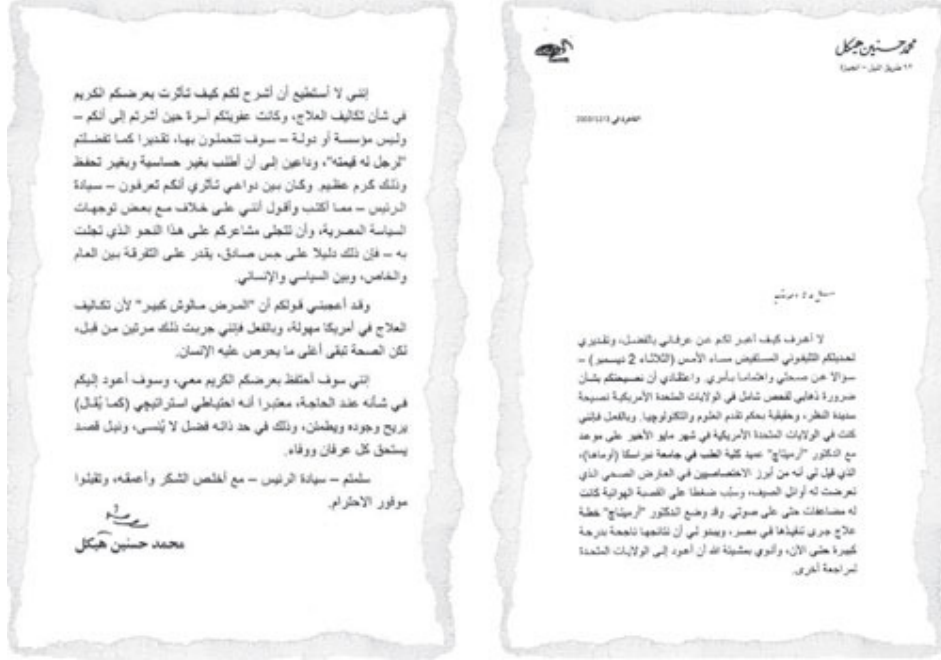 محمد حسنين هيكل
القاهرة في
لا أعرف كيف أعبر لكم عن عرفاني بالفضل، وتقديري
لحديثكم التليفوني المستفيض مساء الأمس (الثلاثاء 2 ديسمبر) –
سؤالا عن صحتي واهتماما بأمري. واعتقادي أن نصيحتكم بشأن
ضرورة ذهابي لفحص شامل في الولايات المتحدة الأمريكية نصيحة
سديدة النظر، وحقيقية بحكم تقدم العلوم والتكنولوجيا. وبالفعل فإنني
كنت في الولايات المتحدة الأمريكية في شهر مايو الأخير على موعد
مع الدكتور "أرميتاج" عميد كلية الطب في جامعة نبراسكا (أوماها)،
الذي قيل لي أنه من أبرز الاختصاصيين في العارض الصحي الذي
تعرضت له أوائل الصيف، وسبّب ضغطا على القصبة الهوائية كانت
له مضاعفات حتى على صوتي. وقد وضع الدكتور "أرميتاج" خطة
علاج جرى تنفيذها في مصر، ويبدو لي أن نتائجها ناجحة بدرجة
كبيرة حتى الآن، وأنوي بمشيئة الله أن أعود إلى الولايات المتحدة
لمراجعة أخرى.
إنني لا أستطيع أن أشرح لكم كيف تأثرت بعرضكم الكريم
في شأن تكاليف العلاج، وكانت عفويتكم آسرة حين أشرتم إلى أنكم –
وليس مؤسسة أو دولة – سوف تتحملون بها، تقديرا كما تفضلتم
"لرجل له قيمته"، وداعين إلى أن أطلب بغير حساسية وبغير تحفظ
وذلك كرم عظيم. وكان بين دواعي تأثري أنكم تعرفون – سيادة
الرئيس – مما أكتب وأقول أنني على خلاف مع بعض توجهات
السياسة المصرية، وأن تتجلى مشاعركم على هذا النحو الذي تجلت
به – فإن ذلك دليلا على حس صادق، يقدر على التفرقة بين العام
والخاص، وبين السياسي والإنساني.
وقد أعجبني قولكم أن "المرض مالوش كبير" لأن تكاليف
العلاج في أمريكا مهولة، وبالفعل فإنني جربت ذلك مرتين من قبل،
لكن الصحة تبقى أغلى ما يحرص عليه الإنسان.
إنني سوف أحتفظ بعرضكم الكريم معي، وسوف أعود إليكم
في شأنه عند الحاجة، معتبرا أنه احتياطي استراتيجي (كما يُقال)
يريح وجوده ويطمئن، وذلك في حد ذاته فضل لا يُنسى، ونبل قصد
يستحق كل عرفان ووفاء.
سلمتم – سيادة الرئيس – مع أخلص الشكر وأعمقه، وتقبلوا
موفور الاحترام.
محمد حسنين هيكل